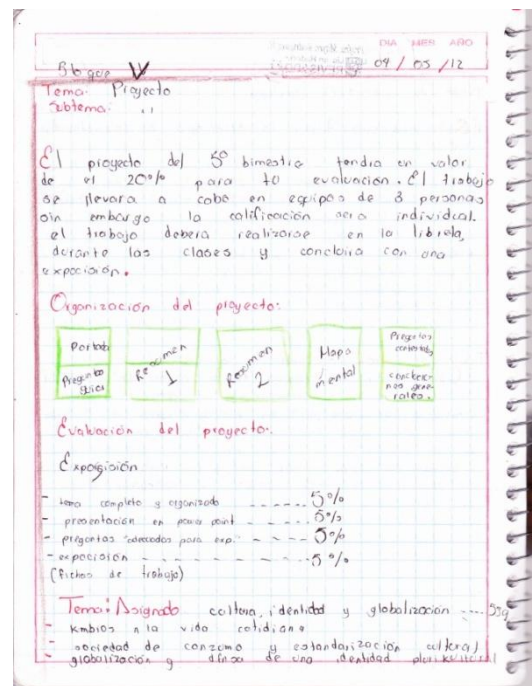 DIA MES AÑO
04 / 05 /12
Bloque V
Tema: Proyecto
Subtema: ,,
El proyecto del 5º bimestre tendra un valor
de el 20% para tu evaluación. El trabajo
se llevara a cabo en equipos de 3 personas
sin embargo la calificación sera individual.
el trabajo debera realizarse en la libreta,
durante las clases y concluira con una
expocisión.
Organización del proyecto:
Portada
Preguntas guias
Resumen 1
Resumen 2
Mapa mental
Preguntas contestadas
generales.
Evaluación del proyecto:.
Exposición
- tema completo y organizado ----- 5%
- presentación en power point ---- 5%
- preguntas "adecuadas para exp." ---- 5%
- expocisión ---- 5%
(fichas de trabajo)
Tema: Asignado cultura, identidad y globalización ---- 559
- Kmbios n la vida cotidiana
- sociedad de consumo y estandarización cultural
globalización y dfnsa de una identidad plurikultural